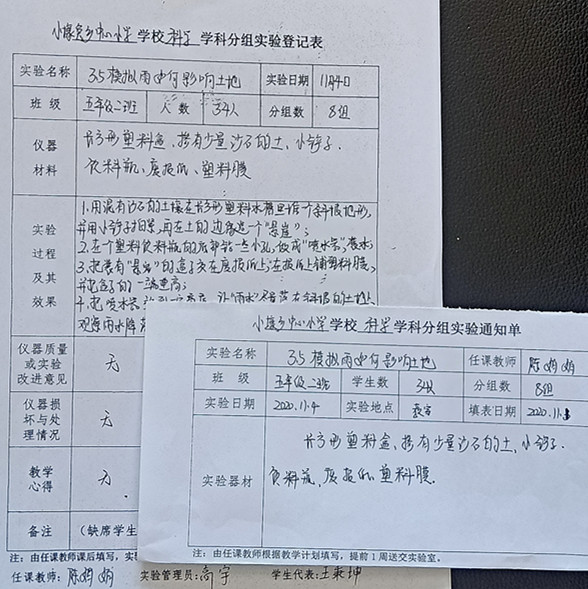 中心小学 学校 科学 学科分组实验登记表
实验名称 3.5 模拟雨如何影响土地 实验日期 11月4日
班 级 五年级二班 人 数 34人 分组数 8组
仪器材料 长方形塑料盒、掺有少量沙石的土、小铲子、
饮料瓶、废报纸、塑料膜
实验过程及其效果 1.用混有沙石的土壤在长方形塑料水槽里堆一个斜坡地形,
并用小铲子拍紧,再在土的边缘造一个"悬崖";
2.在个塑料饮料瓶的底部钻一些小孔,做成"喷水装",装水;
3.把装有"悬崖"的盒子放在废报纸上,在报纸上铺塑料膜,
并把盒子的一端垫高;
4.把喷水器
观察雨水降
仪器质量或实验改进意见 无
仪器损坏与处理情况 无
教学心得 无
备注 (缺席学生
注:由任课教师课后填写,实
任课教师:陈娟娟 实验管理员:高宇 学生代表:王乘坤
中心小学 学校 科学 学科分组实验通知单
实验名称 3.5 模拟雨如何影响土地 任课教师 陈娟娟
班 级 五年级二班 学生数 34人 分组数 8组
实验日期 2020.11.4 实验地点 教室 填表日期 2020.11.3
实验器材 长方形塑料盒、掺有少量沙石的土、小铲子、
饮料瓶、废报纸、塑料膜.
注:由任课教师根据教学计划填写,提前1周送交实验室。